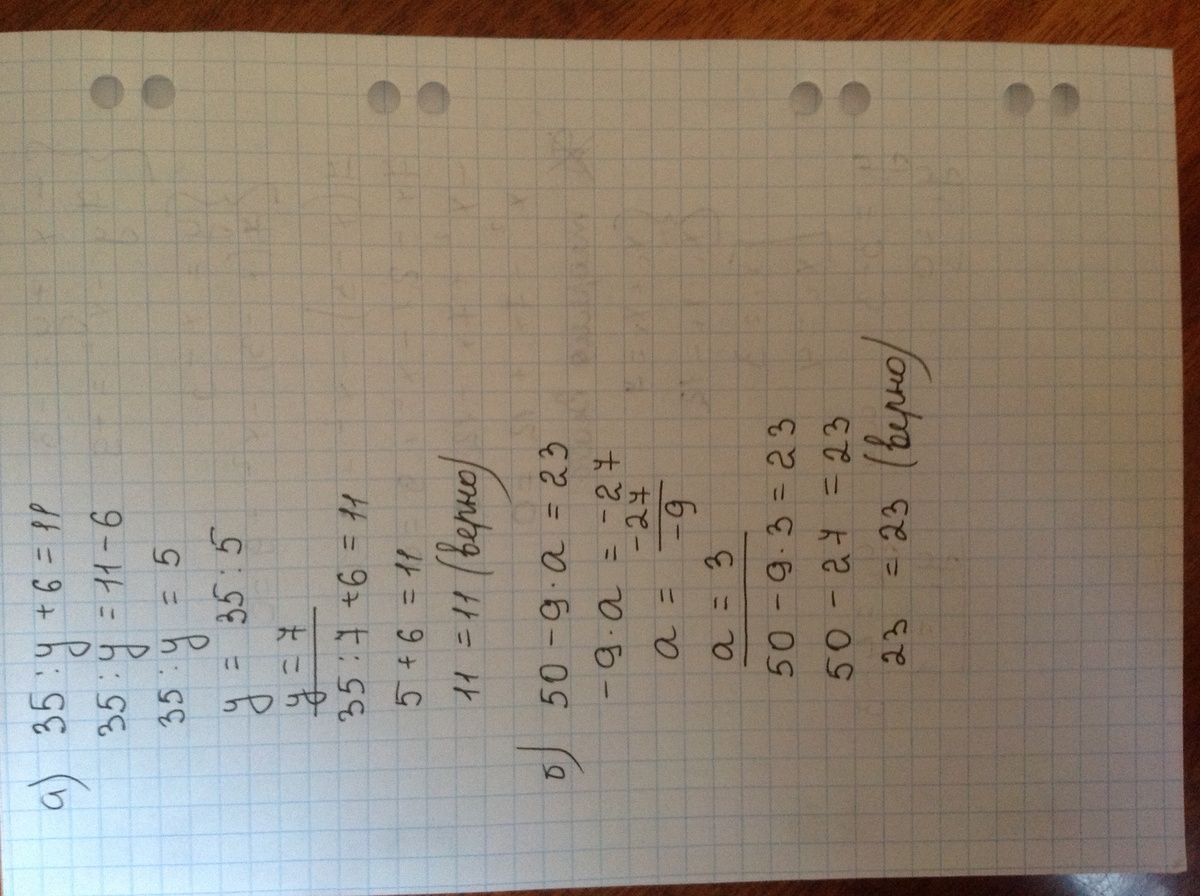 а) 35 : y + 6 = 11
35 : y = 11 - 6
35 : y = 5
y = 35 : 5
y = 7
35 : 7 + 6 = 11
5 + 6 = 11
11 = 11 (верно)
б) 50 - 9 · a = 23
-9 · a = -27
a = -27/-9
a = 3
50 - 9 · 3 = 23
50 - 27 = 23
23 = 23 (верно)